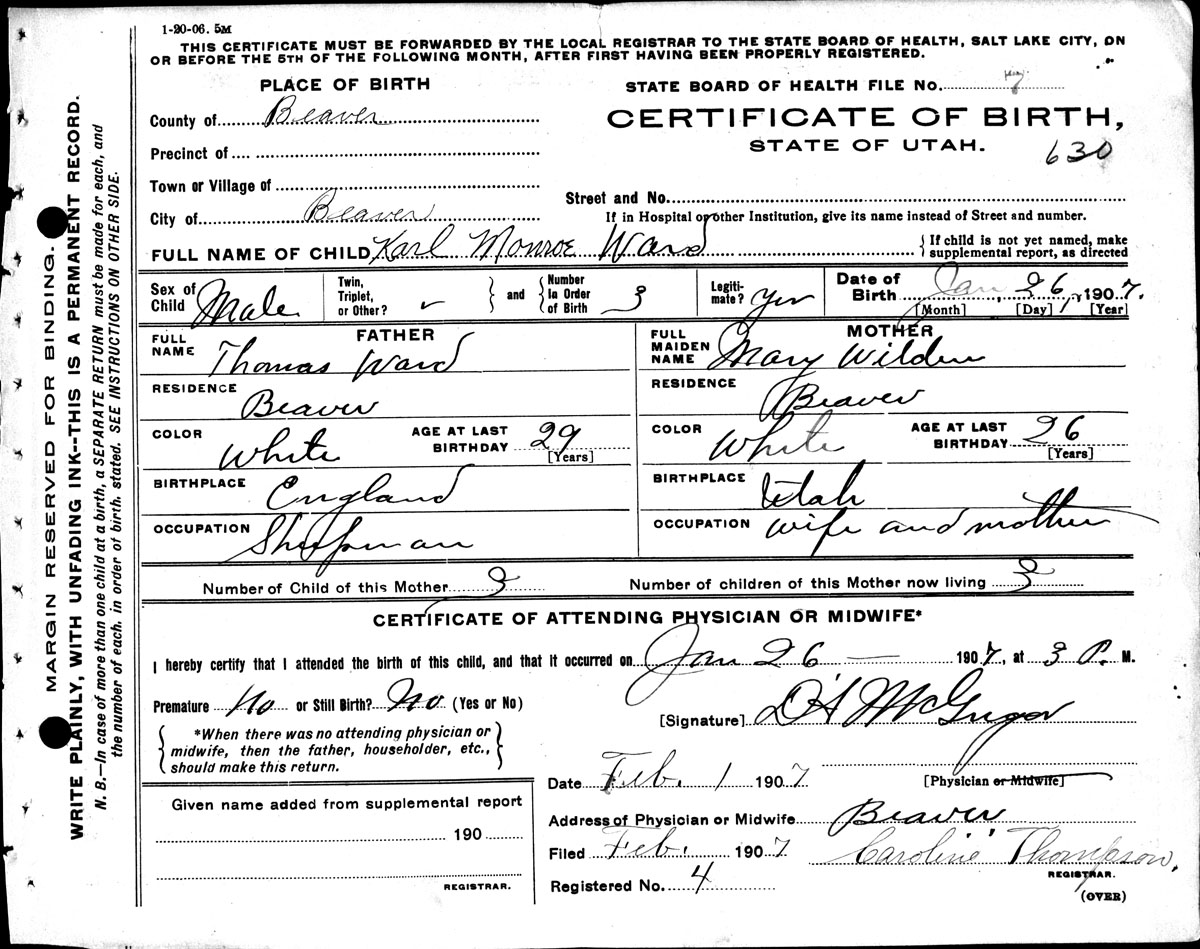 1-20-06. 5M
THIS CERTIFICATE MUST BE FORWARDED BY THE LOCAL REGISTRAR TO THE STATE BOARD OF HEALTH, SALT LAKE CITY, ON
OR BEFORE THE 5TH OF THE FOLLOWING MONTH, AFTER FIRST HAVING BEEN PROPERLY REGISTERED.
PLACE OF BIRTH
STATE BOARD OF HEALTH FILE No. 7
County of Beaver
CERTIFICATE OF BIRTH,
Precinct of
STATE OF UTAH.
630
Town or Village of
Street and No.
City of Beaver
If in Hospital or other Institution, give its name instead of Street and number.
FULL NAME OF CHILD Karl Monroe Ward
{ If child is not yet named, make
supplemental report, as directed
Sex of Child Male
Twin, Triplet, or Other? ✓ } and { Number In Order of Birth 3
Legiti-mate? Yes
Date of Birth Jan, 26, 1907.
[Month] [Day] [Year]
FATHER
FULL NAME Thomas Ward
MOTHER
FULL MAIDEN NAME Mary Wilden
RESIDENCE Beaver
RESIDENCE Beaver
COLOR White AGE AT LAST BIRTHDAY 29 [Years]
COLOR White AGE AT LAST BIRTHDAY 26 [Years]
BIRTHPLACE England
BIRTHPLACE Utah
OCCUPATION Sheepman
OCCUPATION wife and mother
Number of Child of this Mother 3 Number of children of this Mother now living 3
CERTIFICATE OF ATTENDING PHYSICIAN OR MIDWIFE*
I hereby certify that I attended the birth of this child, and that it occurred on Jan 26 — 1907, at 3 P. M.
Premature No or Still Birth? No (Yes or No)
[Signature] McGregor
*When there was no attending physician or
midwife, then the father, householder, etc.,
should make this return.
Date Feb. 1 1907
[Physician or Midwife]
Given name added from supplemental report
190
REGISTRAR.
Address of Physician or Midwife Beaver
Filed Feb. 1907 Caroline Thompson,
REGISTRAR.
Registered No. 4
(OVER)
MARGIN RESERVED FOR BINDING.
WRITE PLAINLY, WITH UNFADING INK--THIS IS A PERMANENT RECORD.
N. B.—In case of more than one child at a birth, a SEPARATE RETURN must be made for each, and
the number of each, in order of birth, stated. SEE INSTRUCTIONS ON OTHER SIDE.